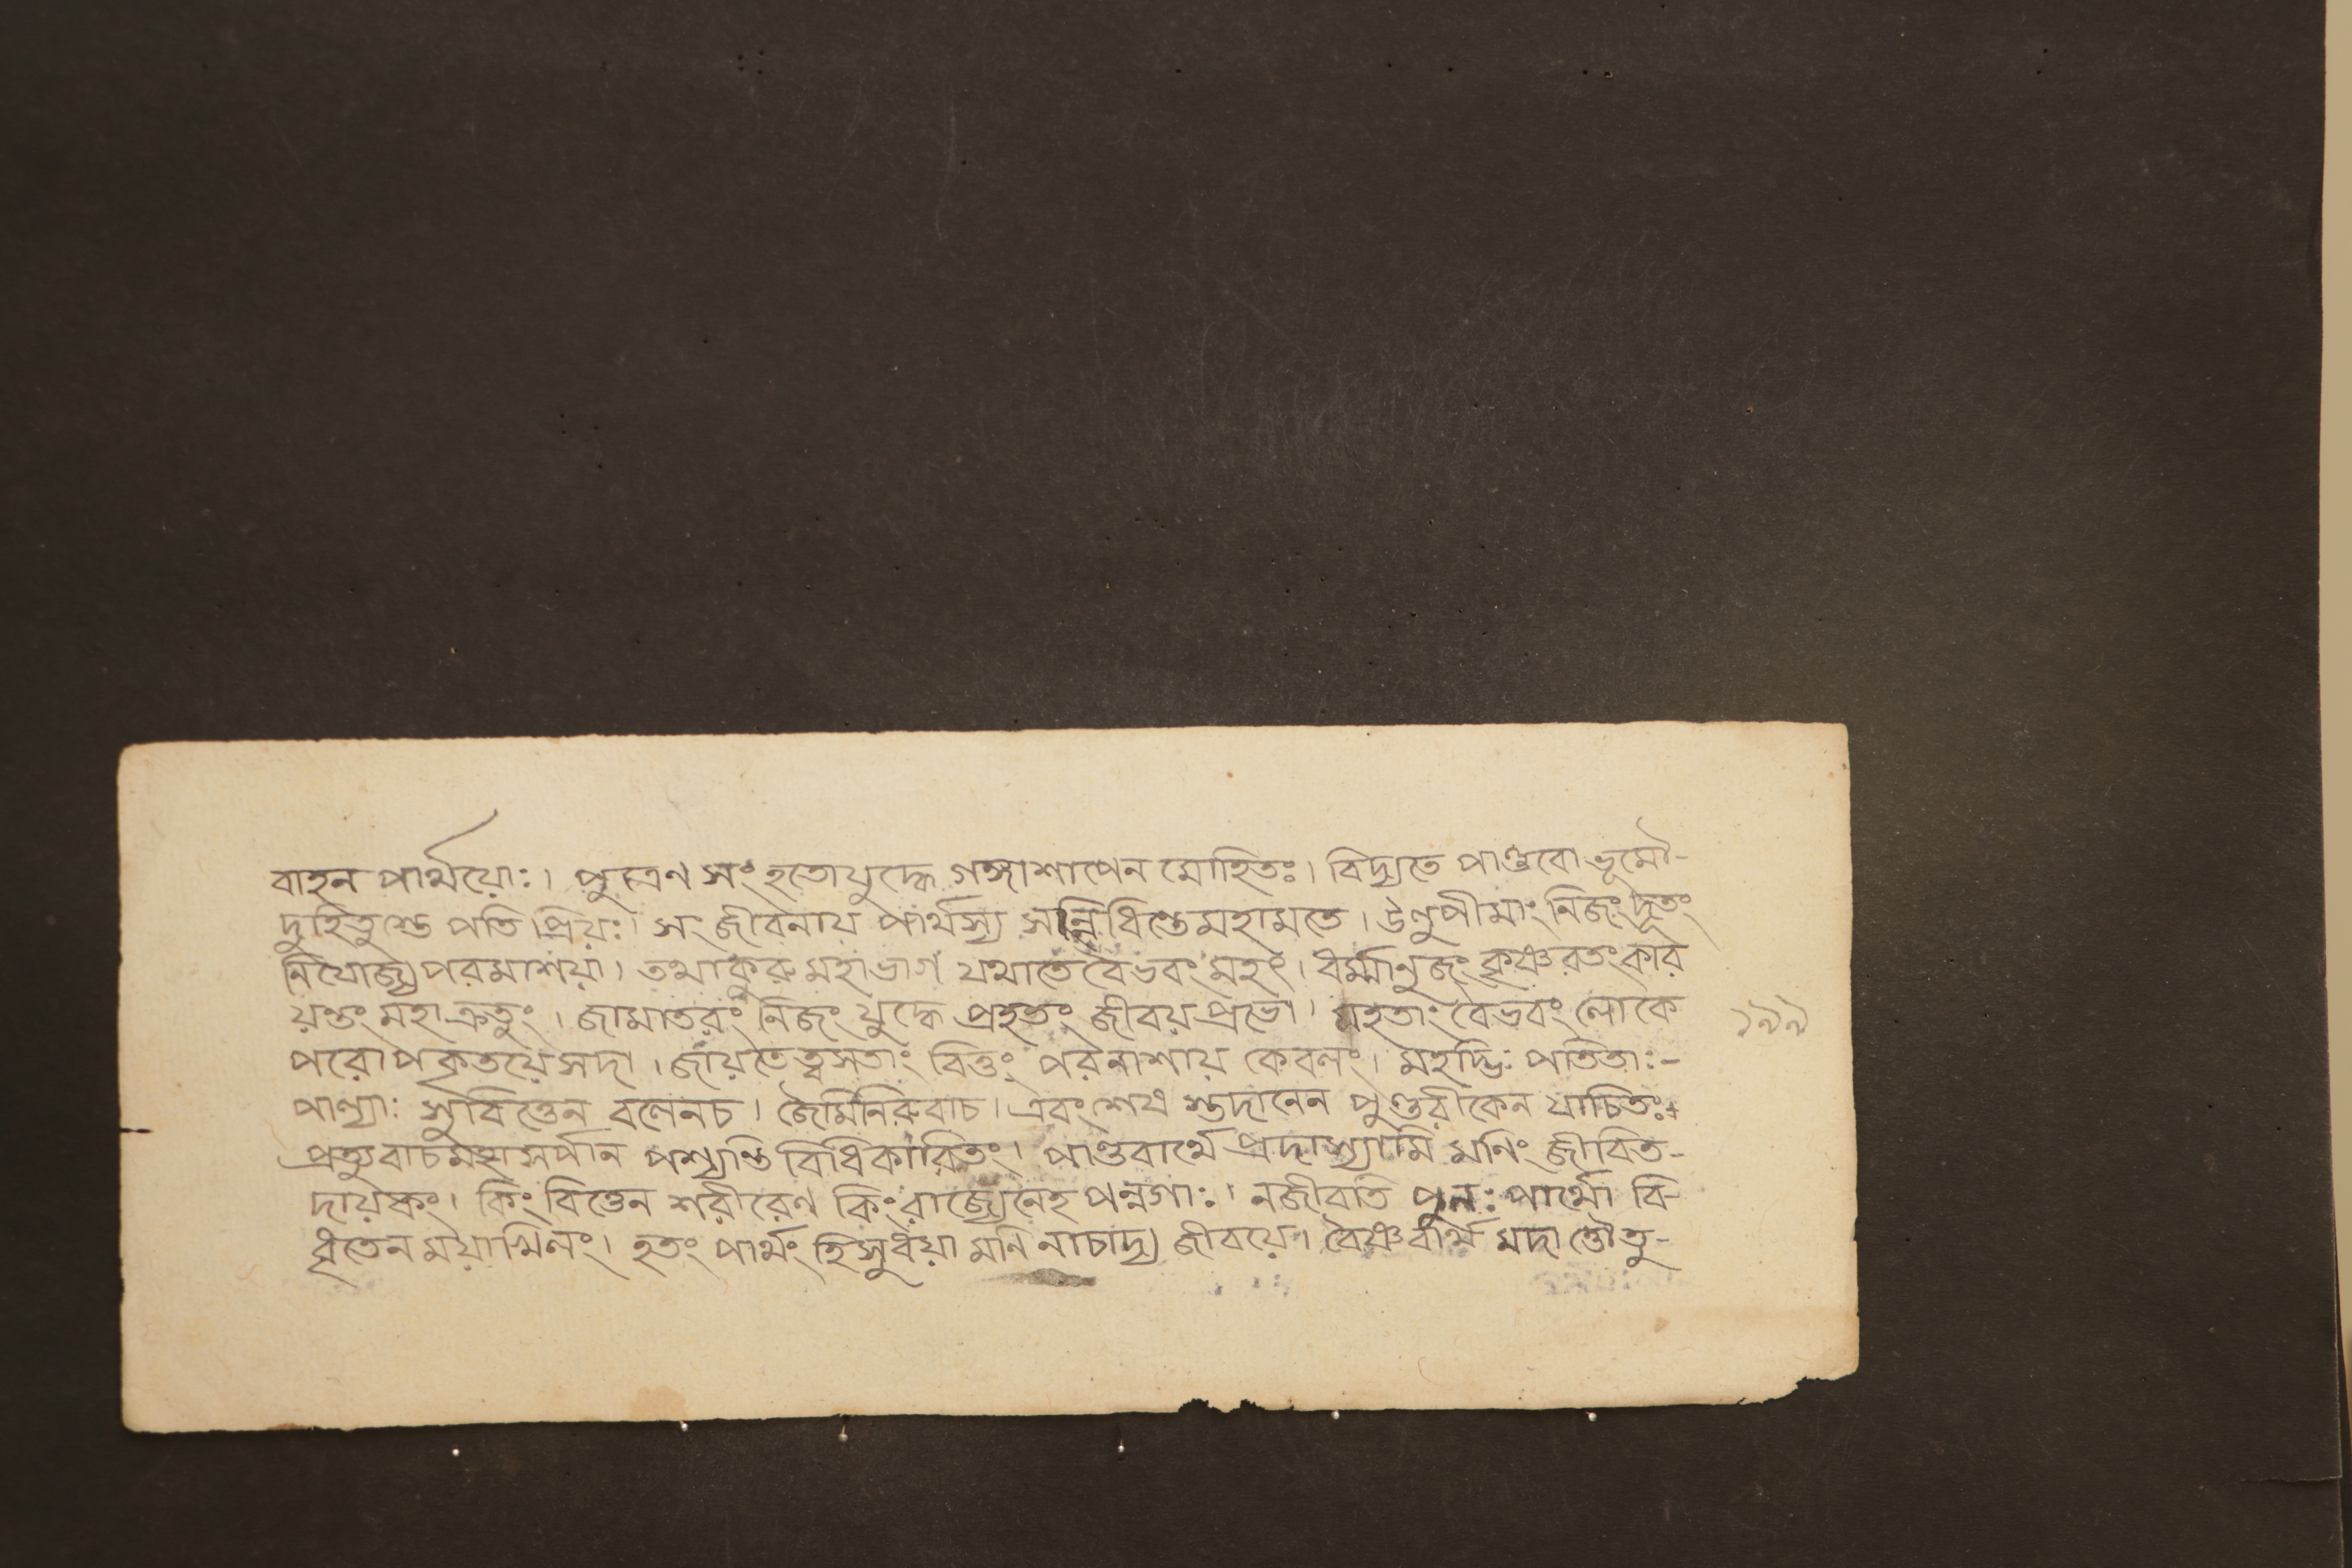 বাহন পার্থয়োঃ। পুত্রেণ সংহতোযুদ্ধে গঙ্গাশাপেন মোহিতঃ। বিদ্যতে পাণ্ডবো ভূমৌ-
দুহিতুস্তে পতি প্রিয়ঃ। সংজীবনায় পার্থস্য সন্নিধিস্তেমহামতে। উলুপীমাং নিজং দূতং
নিযোজ্য পরমাশয়া। তথাকুরু মহাভাগ যথাতেবৈভবং মহৎ। ধর্ম্মানুজং কৃষ্ণরতং কার
য়ন্তং মহাক্রতুং। জামাতরং নিজং যুদ্ধে প্রহৃতং জীবয়প্রভো। মহতাং বৈভবং লোকে
পরোপকৃতয়ে সদা। জায়তেত্বসতাং বিত্তং পরনাশায় কেবলং। মহদ্ভিঃ পতিতাঃ-
পাল্যাঃ সুবিত্তেন বলেনচ। জৈমিনিরুবাচ। এবংশেষ স্তদানেন পুণ্ডরীকেন যাচিতঃ+
প্রত্যুবাচমহাসর্পান পশ্যন্তি বিধিকারিতং। পাণ্ডবার্থে প্রদাস্যামি মনিং জীবিত-
দায়কং। কিং বিত্তেন শরীরেণ কিংরাজ্যেনেহ পন্নগাঃ। নজীবতি পুনঃ পার্থো বি-
ধৃতেন ময়াখিলং। হতং পার্থং হিসুধয়া মনি নাচাদ্য জীবয়ে। বৈষ্ণবার্থ মদা ত্তৌতু-
১৯৯